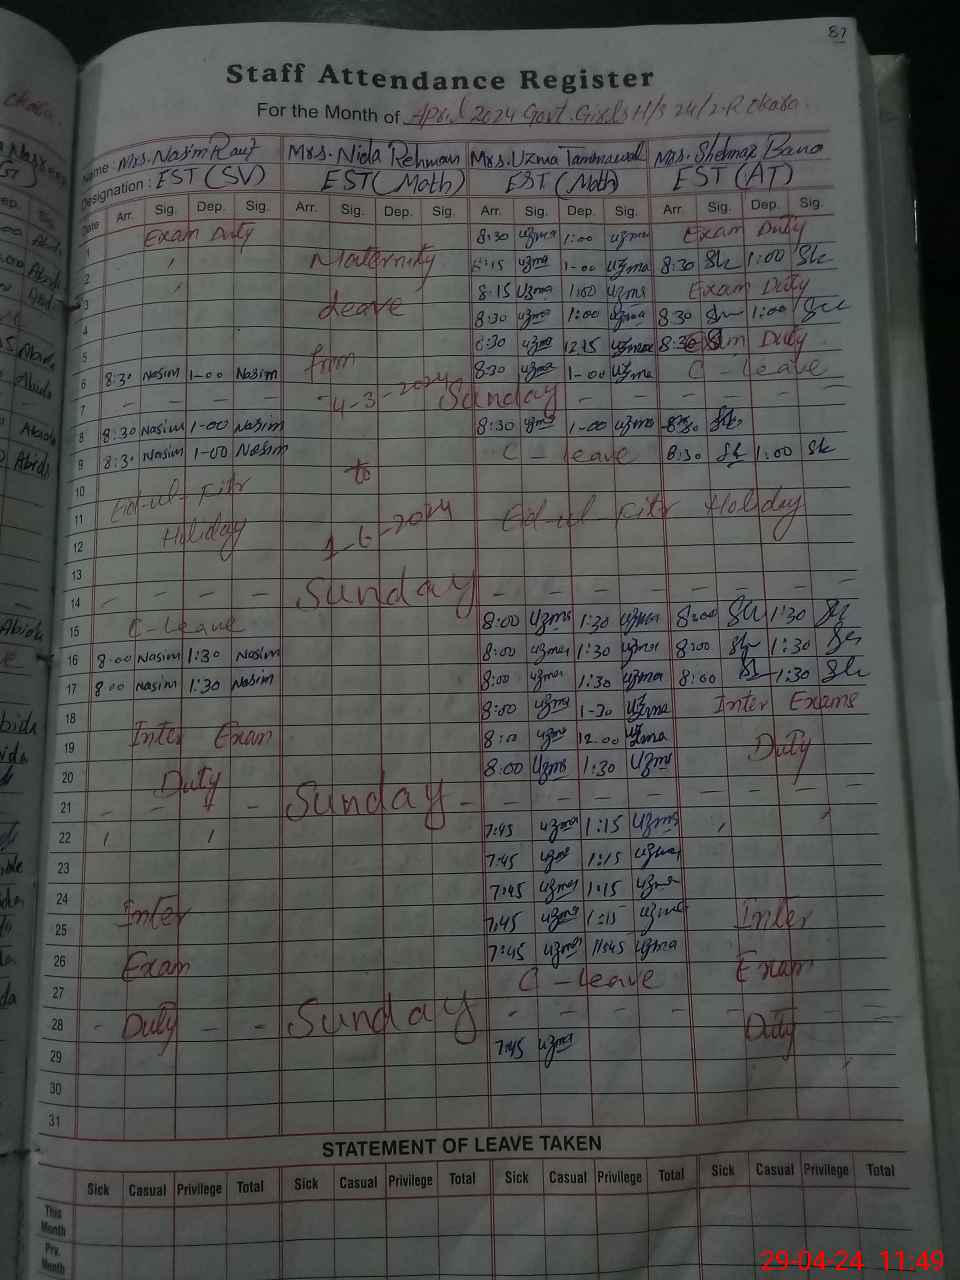 87
Staff Attendance Register
For the Month of April 2024 Govt. Girls H/S 24/2-R Okara.
Name: Mrs. Nasim Rauf Mrs. Nida Rehman Mrs. Uzma Mrs. Shehnaz Bano
Designation: EST (SV) EST (Math) EST (Math) EST (AT)
Date Arr. Sig. Dep. Sig. Arr. Sig. Dep. Sig. Arr. Sig. Dep. Sig. Arr. Sig. Dep. Sig.
1 Exam Duty 8:30 uzma 1:00 uzma Exam Duty
2 Maternity 8:15 uzma 1-00 uzma 8:30 Sh 1:00 Sh
3 8:15 uzma 1:00 uzma Exam Duty
4 Leave 8:30 uzma 1:00 uzma 8:30 Sh 1:00 Sh
5 8:30 uzma 12:15 uzma 8:30 Duty
6 8:30 Nasim 1-00 Nasim from 8:30 uzma 1-00 uzma C-leave
7 - - - - -4-3-2024 Sunday - - - -
8 8:30 Nasim 1-00 Nasim 8:30 uzma 1-00 uzma 8:30 Sh
9 8:30 Nasim 1-00 Nasim to C-leave 8:30 Sh 1:00 Sh
10 Eid-ul-Fitr
11 Eid-ul-Fitr Holiday
12 Holiday 1-6-2024
13
14 - - - - Sunday - - - - - - - -
15 C-Leave 8:00 uzma 1:30 uzma 8:00 Sh 1:30 Sh
16 8:00 Nasim 1:30 Nasim 8:00 uzma 1:30 uzma 8:00 Sh 1:30 Sh
17 8:00 Nasim 1:30 Nasim 8:00 uzma 1:30 uzma 8:00 Sh 1:30 Sh
18 8:00 uzma 1-30 uzma Inter Exams
19 Inter Exam 8:00 uzma 12:00 uzma Duty
20 Duty 8:00 uzma 1:30 uzma
21 - - - Sunday - - - - - - - - -
22 7:45 uzma 1:15 uzma
23 7:45 uzma 1:15 uzma
24 7:45 uzma 1:15 uzma
25 Inter 7:45 uzma 1:15 uzma Inter
26 Exam 7:45 uzma 11:45 uzma Exam
27 C-leave
28 - Duty - - Sunday - - - - - - - - Duty
29 7:45 uzma
30
31
STATEMENT OF LEAVE TAKEN
Sick Casual Privilege Total Sick Casual Privilege Total Sick Casual Privilege Total Sick Casual Privilege Total
This Month
Prv. Month
29-04-24 11:49